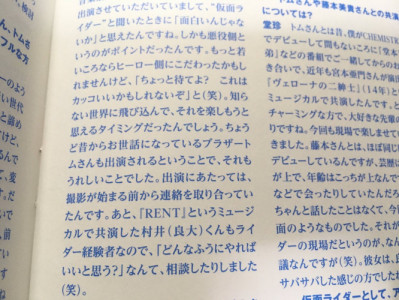 フルな方
のよう
い世代
と諦め
出演させていただいていまして、“仮面
ライダー”と聞いたときに「面白いんじゃな
いか」と思えたんですね。しかも悪役側と
いうのがポイントだったんです。もっと若
いころならヒーロー側にこだわったかもし
れませんけど、「ちょっと待てよ？　これは
カッコいいかもしれないぞ」と（笑）。知ら
ない世界に飛び込んで、それを楽しもうと
思えるタイミングだったんでしょう。ちょう
ど昔からお世話になっているブラザート
ムさんも出演されるということで、それも
うれしいことでした。出演にあたっては、
撮影が始まる前から連絡を取り合ってい
たんです。あと、「RENT」というミュージ
カルで共演した村井（良大）くんもライ
ダー経験者なので、「どんなふうにやれば
いいと思う？」なんて、相談したりしました
（笑）。
については？
堂珍　トムさんとは昔、僕がCHEMISTR
でデビューして間もないころに「堂本
弟」などの番組でご一緒してからのお
き合いで、近年も宮本亜門さんが演出
「ヴェローナの二紳士」（14年）と
ミュージカルで共演したんです。と
チャーミングな方で、大好きな先輩の
ですね。今回も現場で楽しませて
きました。藤本さんとは、ほぼ同じ
デビューしているんですが、芸歴が
が上で、年齢はこっちが上なんで
などで会ったりしていたんだろ
ちゃんと話したことはなくて、今回
面のようなものでした。それが
ダーの現場だというのが、なん
議なんですが（笑）。彼女は、
サバサバした感じの方でした
仮面ライダーとして、ア